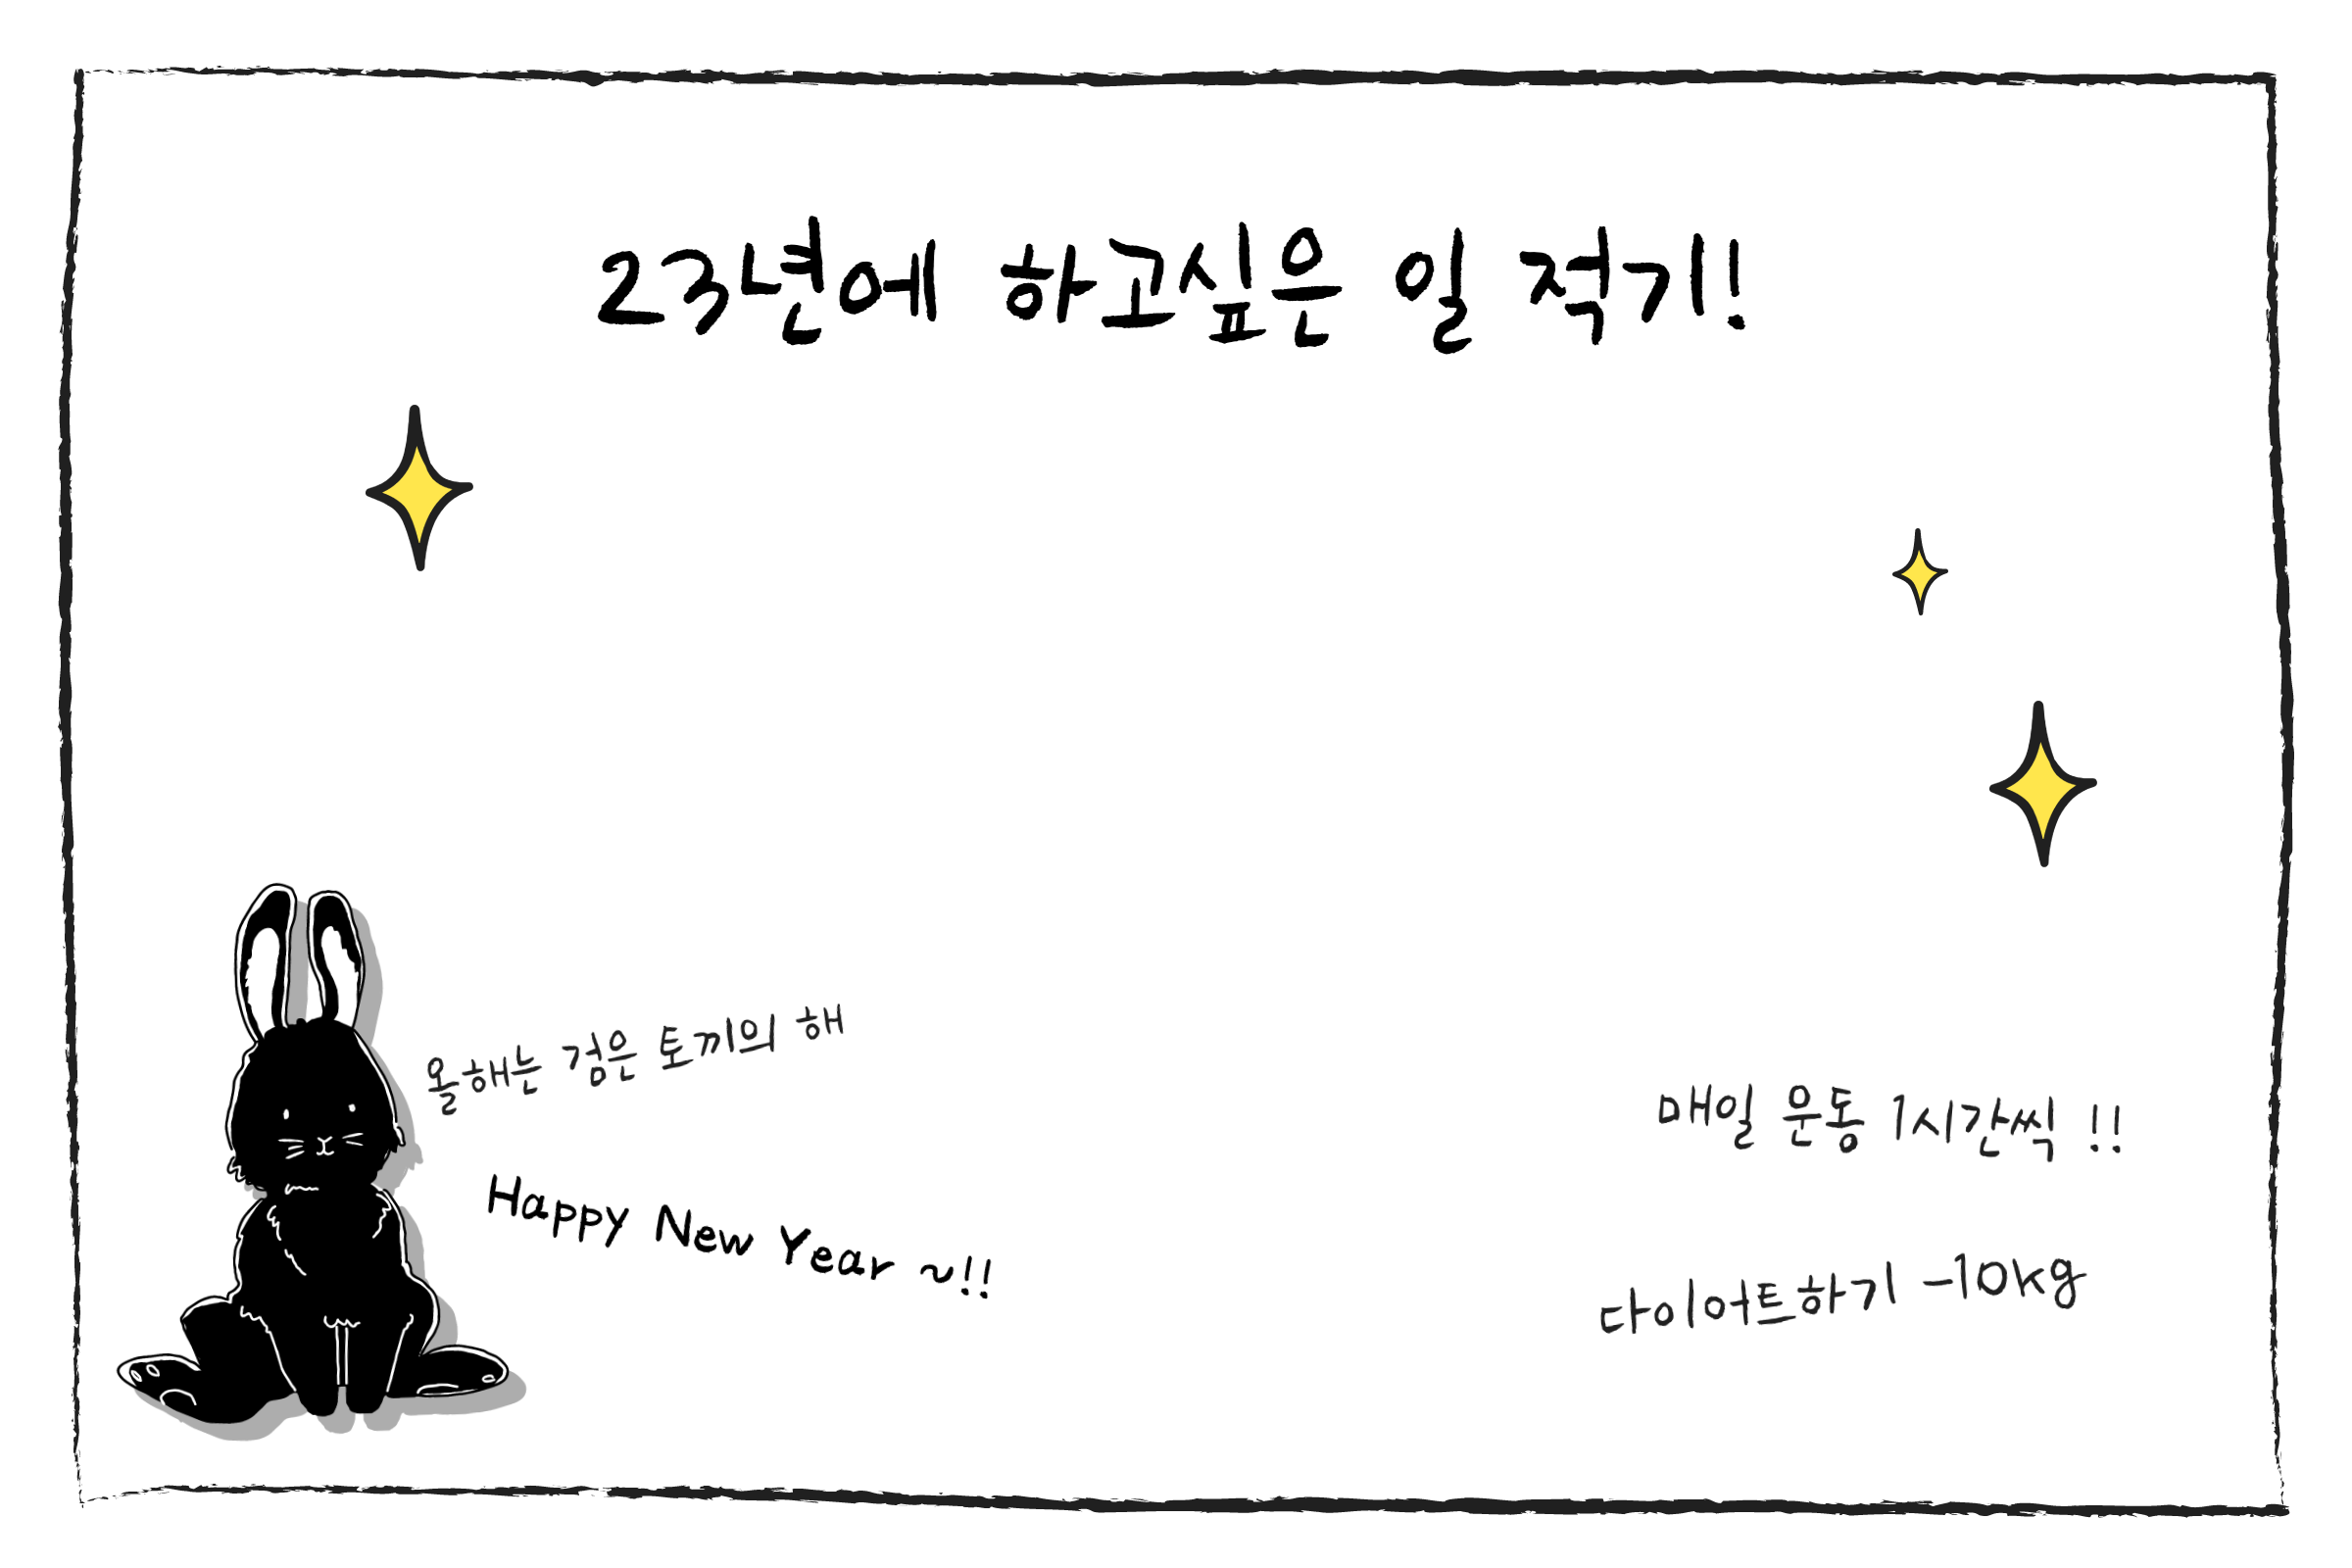 23년에 하고싶은 일 적기!
올해는 검은 토끼의 해
Happy New Year ~!!
매일 운동 1시간씩 !!
다이어트하기 -10kg